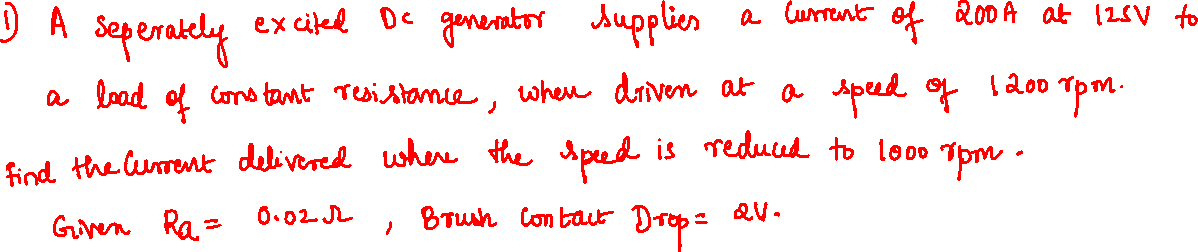 1) A seperately excited Dc generator supplies a current of 200A at 125V to
a load of constant resistance, when driven at a speed of 1200 rpm.
Find the current delivered when the speed is reduced to 1000 rpm.
Given Ra = 0.02Ω, Brush Contact Drop = 2V.